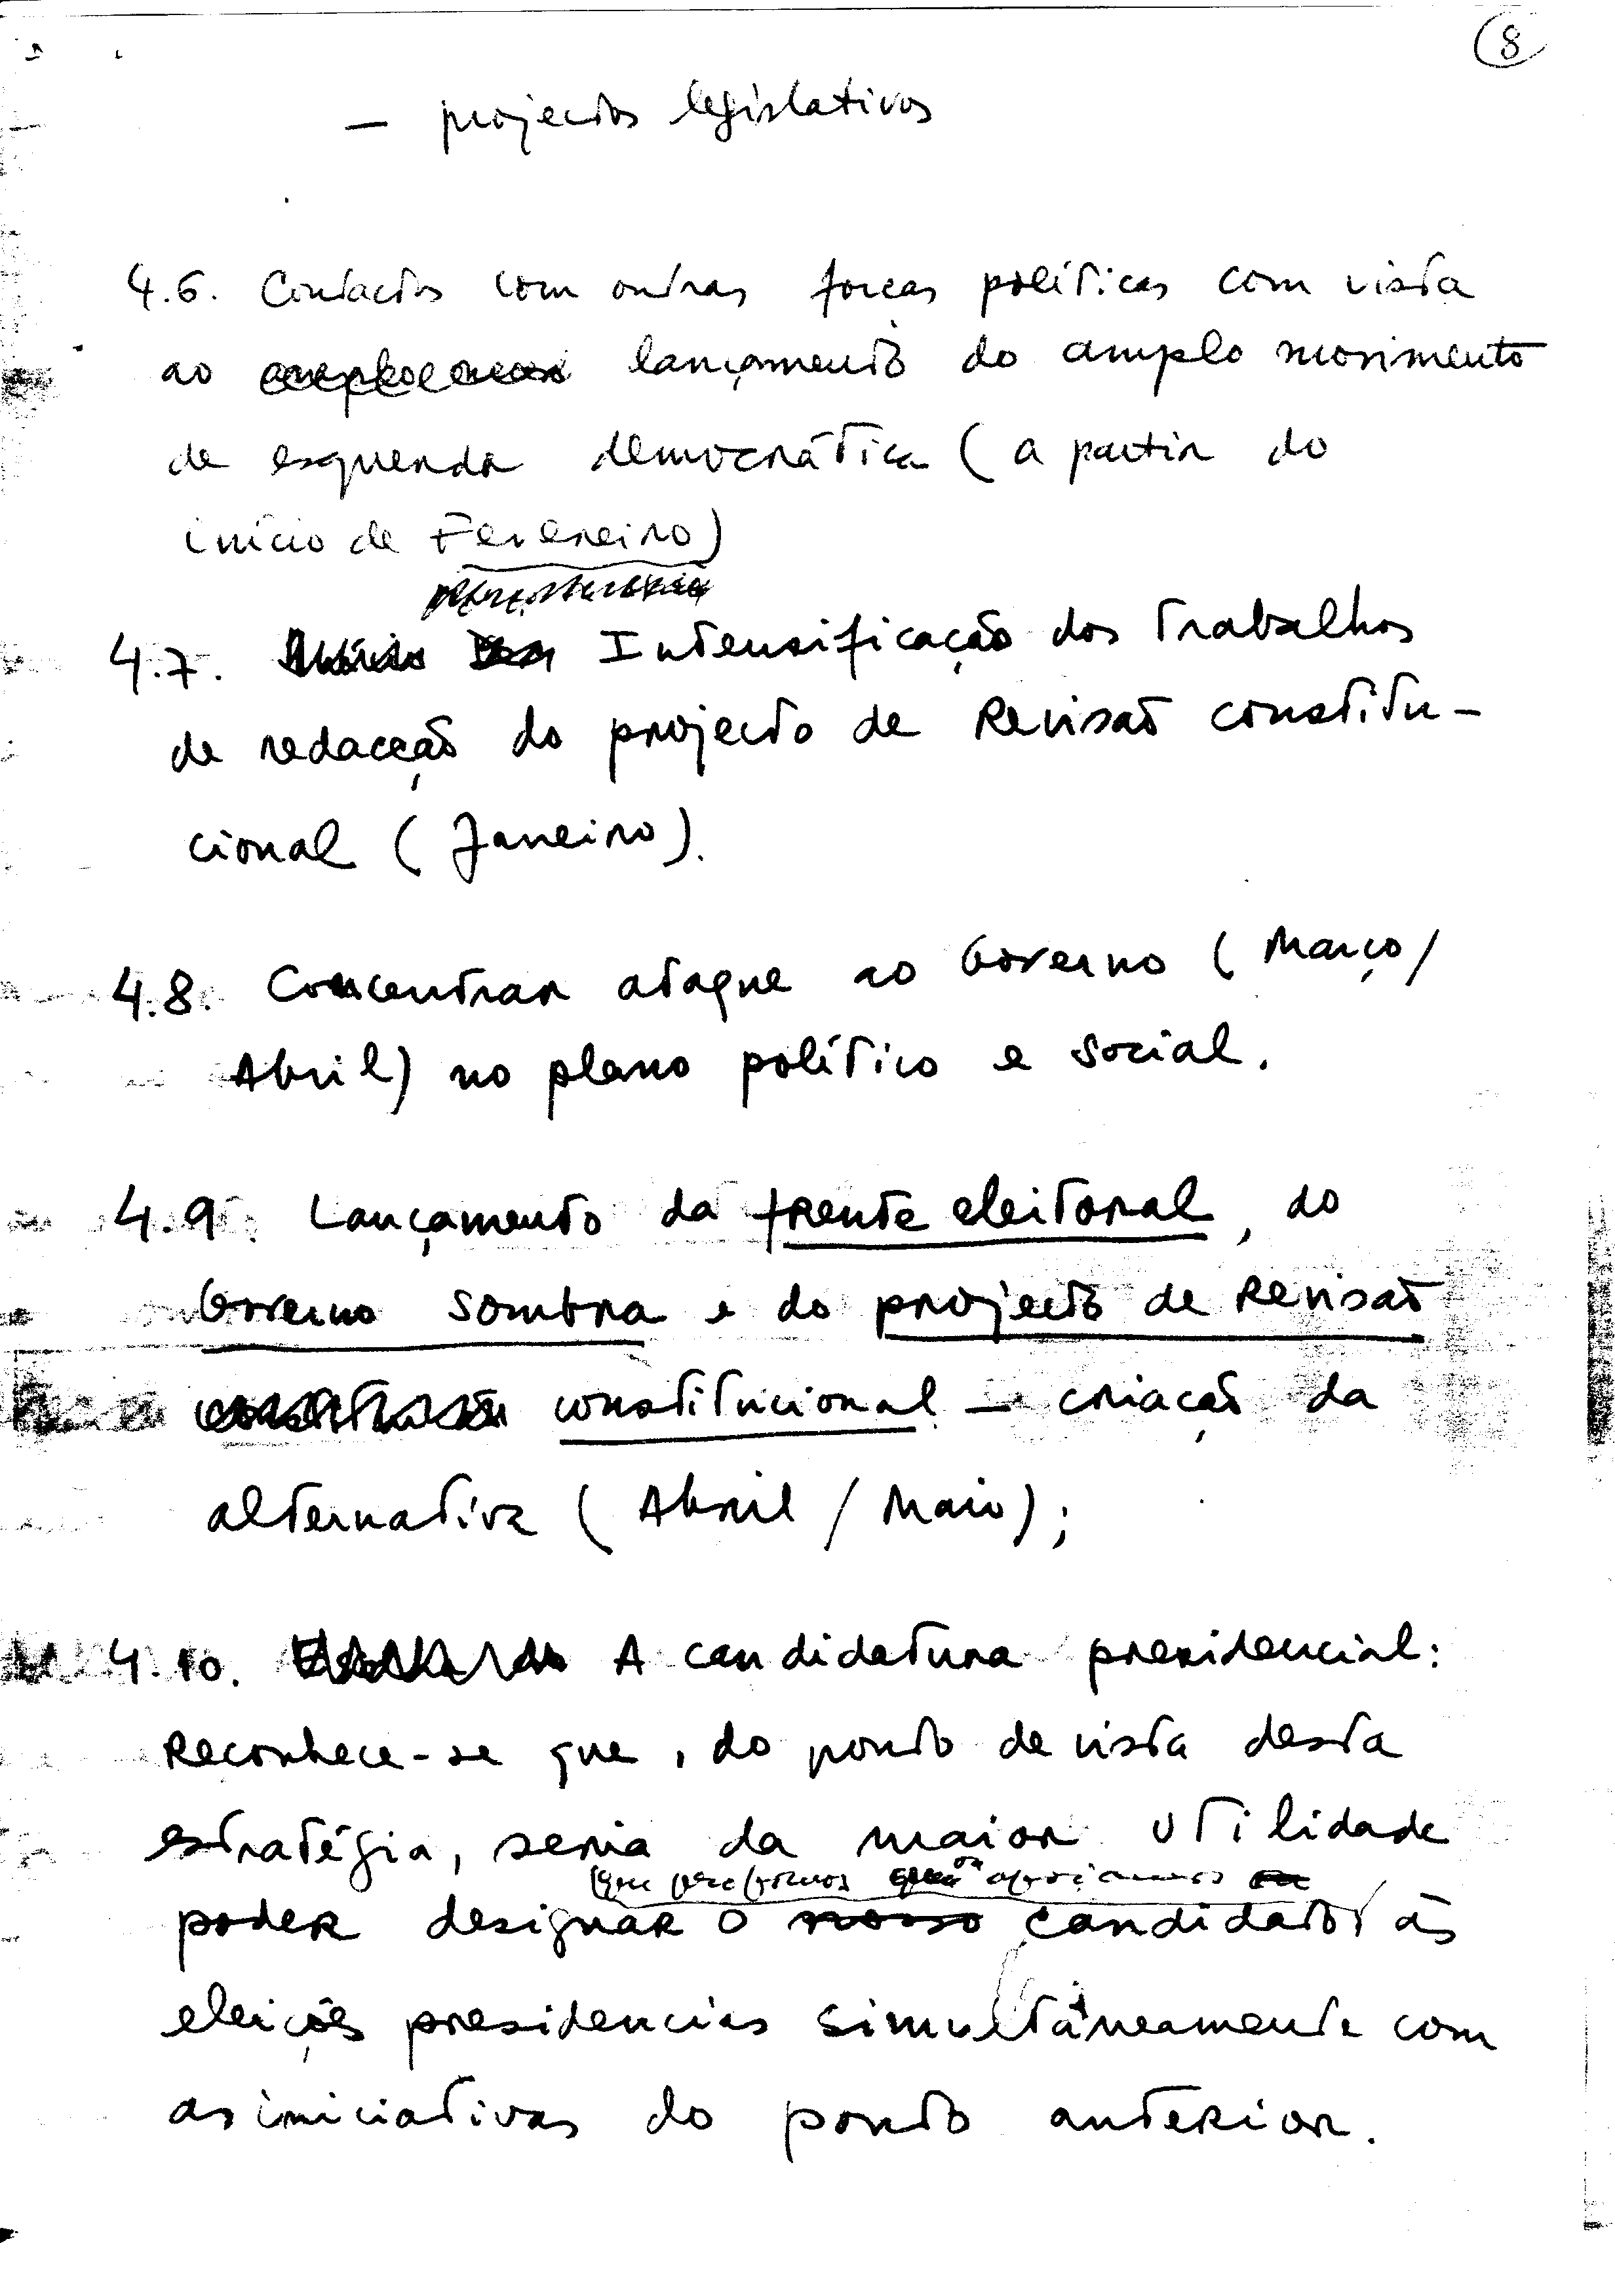 8
— projectos legislativos
4.6. Contactos com outras forças políticas com vista
ao lançamento do amplo movimento
de esquerda democrática (a partir do
início de Fevereiro)
4.7. Intensificação dos trabalhos
de redacção do projecto de Revisão constitu-
cional (Janeiro).
4.8. Concentrar ataque ao Governo (Março/
Abril) no plano político e social.
4.9. Lançamento da frente eleitoral, do
Governo sombra e do projecto de Revisão
constitucional — criação da
alternativa (Abril / Maio);
4.10. A candidatura presidencial:
Reconhece-se que, do ponto de vista desta
estratégia, seria da maior utilidade
apoiamos
poder designar o nosso candidato às
eleições presidencias simultâneamente com
as iniciativas do ponto anterior.